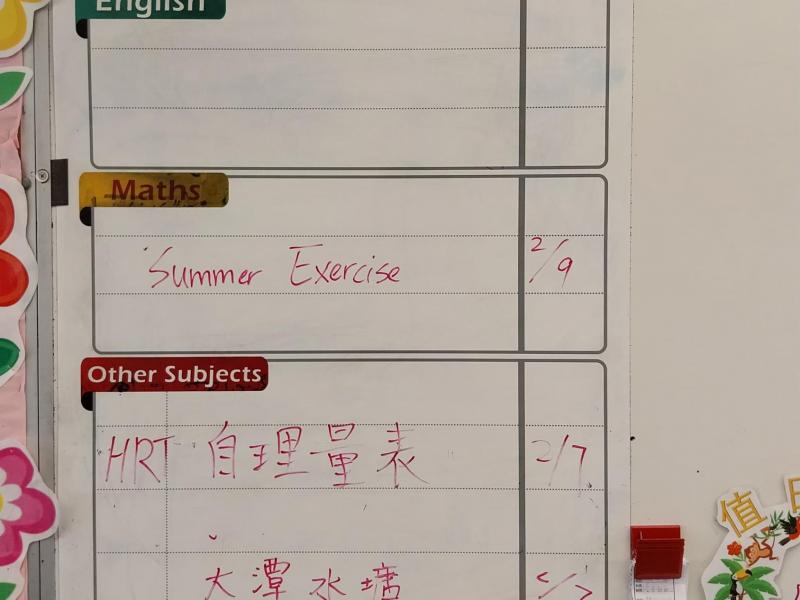 English
Maths
Summer Exercise 2/9
Other Subjects
HRT 自理量表 2/7
大潭水塘
值日